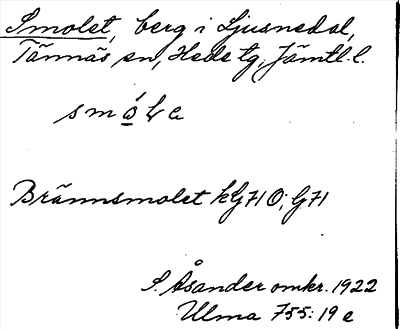 Smolet, berg i Ljusnedal,
Tännäs sn, Hede tg, Jämtl. l.
Brännsmolet kG71 O; G71
S. Åsander omkr. 1922
Ulma 755:19 e